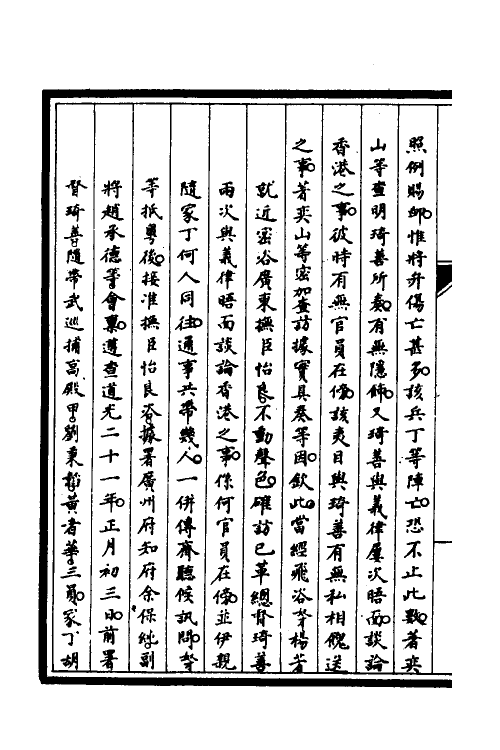 照例賜卹惟將弁傷亡甚多該兵丁等陣亡恐不止此數著奕
山等查明琦善所奏有無隱飾又琦善與義律屢次晤面談論
香港之事彼時有無官員在傍該夷目與琦善有無私相餽送
之事著奕山等密加查訪據實具奏等因欽此當經飛咨奴才楊芳
就近密咨廣東撫臣怡良不動聲色確訪已革總督琦善
兩次與義律晤面談論香港之事係何官員在傍並伊親
隨家丁何人同往通事共帶幾人一併傳齊聽候訊問奴才
等抵粵後接准撫臣怡良咨據署廣州府知府余保純副
將趙承德等會稟遵查道光二十一年正月初三日前署
督琦善隨帶武巡捕高殿甲劉秉黃者華三員家丁胡